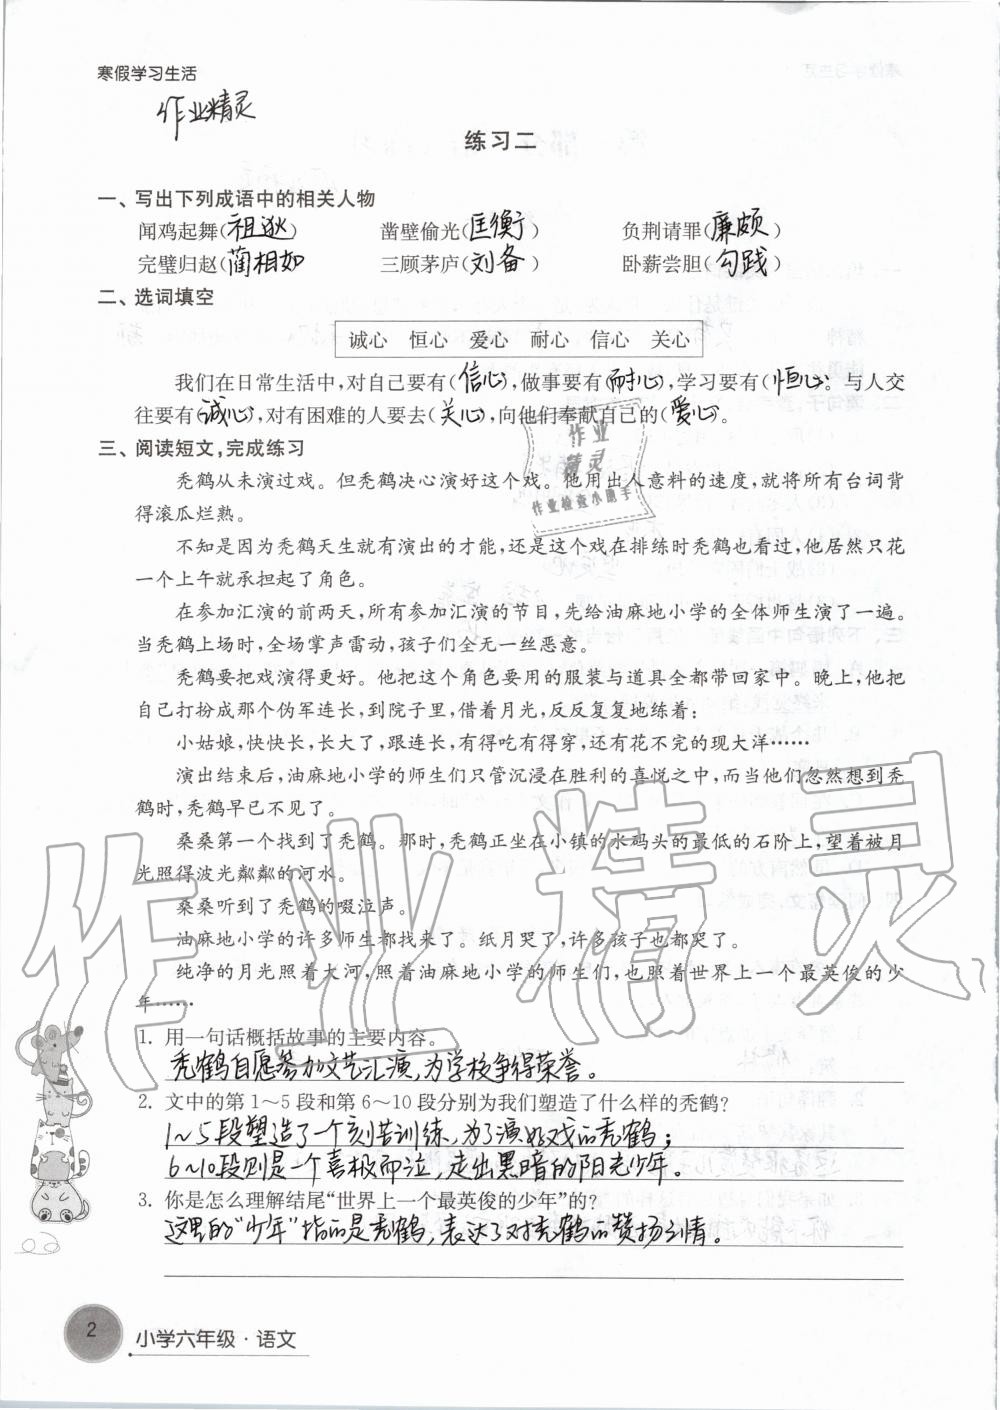 寒假学习生活
作业精灵
练习二
一、写出下列成语中的相关人物
闻鸡起舞(祖逖) 凿壁偷光(匡衡) 负荆请罪(廉颇)
完璧归赵(蔺相如) 三顾茅庐(刘备) 卧薪尝胆(勾践)
二、选词填空
诚心 恒心 爱心 耐心 信心 关心
我们在日常生活中,对自己要有(信心),做事要有(耐心),学习要有(恒心)。与人交
往要有(诚心),对有困难的人要去(关心),向他们奉献自己的(爱心)。
三、阅读短文,完成练习
秃鹤从未演过戏。但秃鹤决心演好这个戏。他用出人意料的速度,就将所有台词背
得滚瓜烂熟。
不知是因为秃鹤天生就有演出的才能,还是这个戏在排练时秃鹤也看过,他居然只花
一个上午就承担起了角色。
在参加汇演的前两天,所有参加汇演的节目,先给油麻地小学的全体师生演了一遍。
当秃鹤上场时,全场掌声雷动,孩子们全无一丝恶意。
秃鹤要把戏演得更好。他把这个角色要用的服装与道具全都带回家中。晚上,他把
自己打扮成那个伪军连长,到院子里,借着月光,反反复复地练着:
小姑娘,快快长,长大了,跟连长,有得吃有得穿,还有花不完的现大洋……
演出结束后,油麻地小学的师生们只管沉浸在胜利的喜悦之中,而当他们忽然想到秃
鹤时,秃鹤早已不见了。
桑桑第一个找到了秃鹤。那时,秃鹤正坐在小镇的水码头的最低的石阶上,望着被月
光照得波光粼粼的河水。
桑桑听到了秃鹤的啜泣声。
油麻地小学的许多师生都找来了。纸月哭了,许多孩子也都哭了。
纯净的月光照着大河,照着油麻地小学的师生们,也照着世界上一个最英俊的少
年……
1. 用一句话概括故事的主要内容。
秃鹤自愿参加文艺汇演,为学校争得荣誉。
2. 文中的第1～5段和第6～10段分别为我们塑造了什么样的秃鹤?
1～5段塑造了一个刻苦训练,为了演好戏的秃鹤;
6～10段则是一个喜极而泣,走出黑暗的阳光少年。
3. 你是怎么理解结尾“世界上一个最英俊的少年”的?
这里的“少年”指的是秃鹤,表达了对秃鹤的赞扬之情。
2
小学六年级·语文
作业
精灵
作业检查小助手
作业精灵